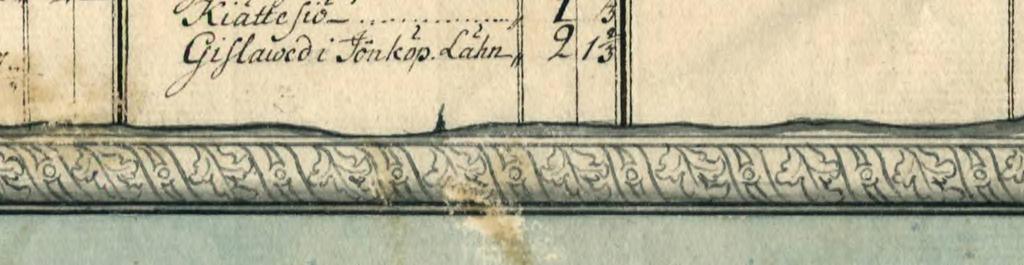 Kiättesiö .................. „ 1 1/3
Gislawed i Jönköp. Lähn „ 2 1 2/3